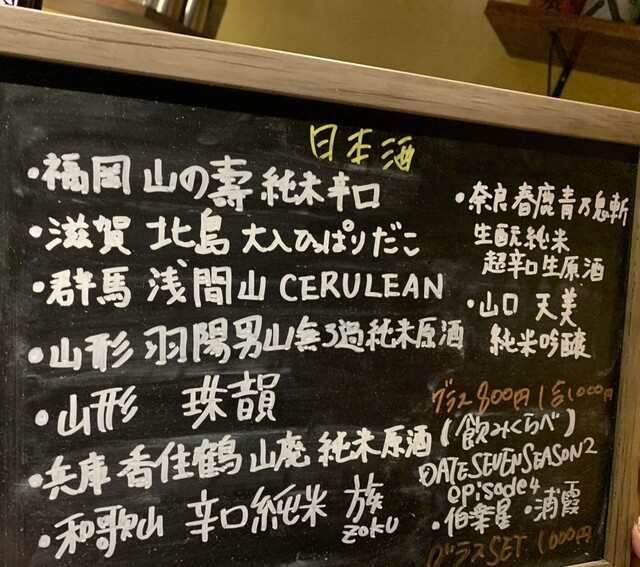 日本酒
・福岡 山の壽 純米辛口
・滋賀 北島 大入ひっぱりだこ
・群馬 浅間山 CERULEAN
・山形 羽陽男山無ろ過純米原酒
・山形 珠韻
・兵庫 香住鶴 山廃 純米原酒
・和歌山 辛口純米 族
ZOKU
・奈良 春鹿 青乃鬼斬
生酛純米
超辛口生原酒
・山口 天美
純米吟醸
グラス 800円 1合1000円
(飲みくらべ)
DATE SEVEN SEASON2
episode4
・伯楽星 ・浦霞
グラスSET 1000円